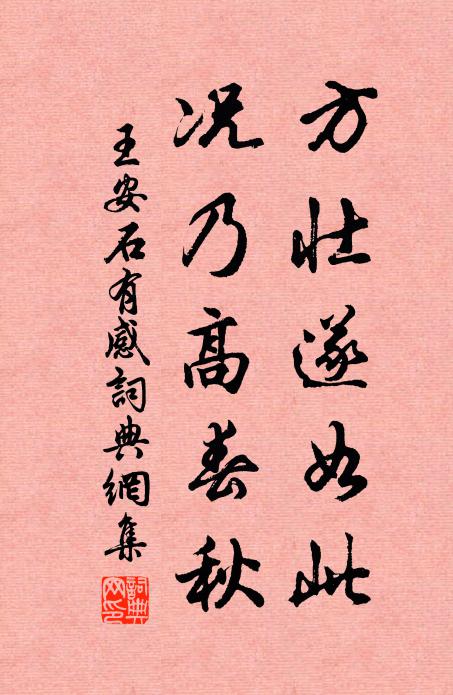 方壮遂如此
况乃高春秋
王安石有感詞典網集
詞典
网印